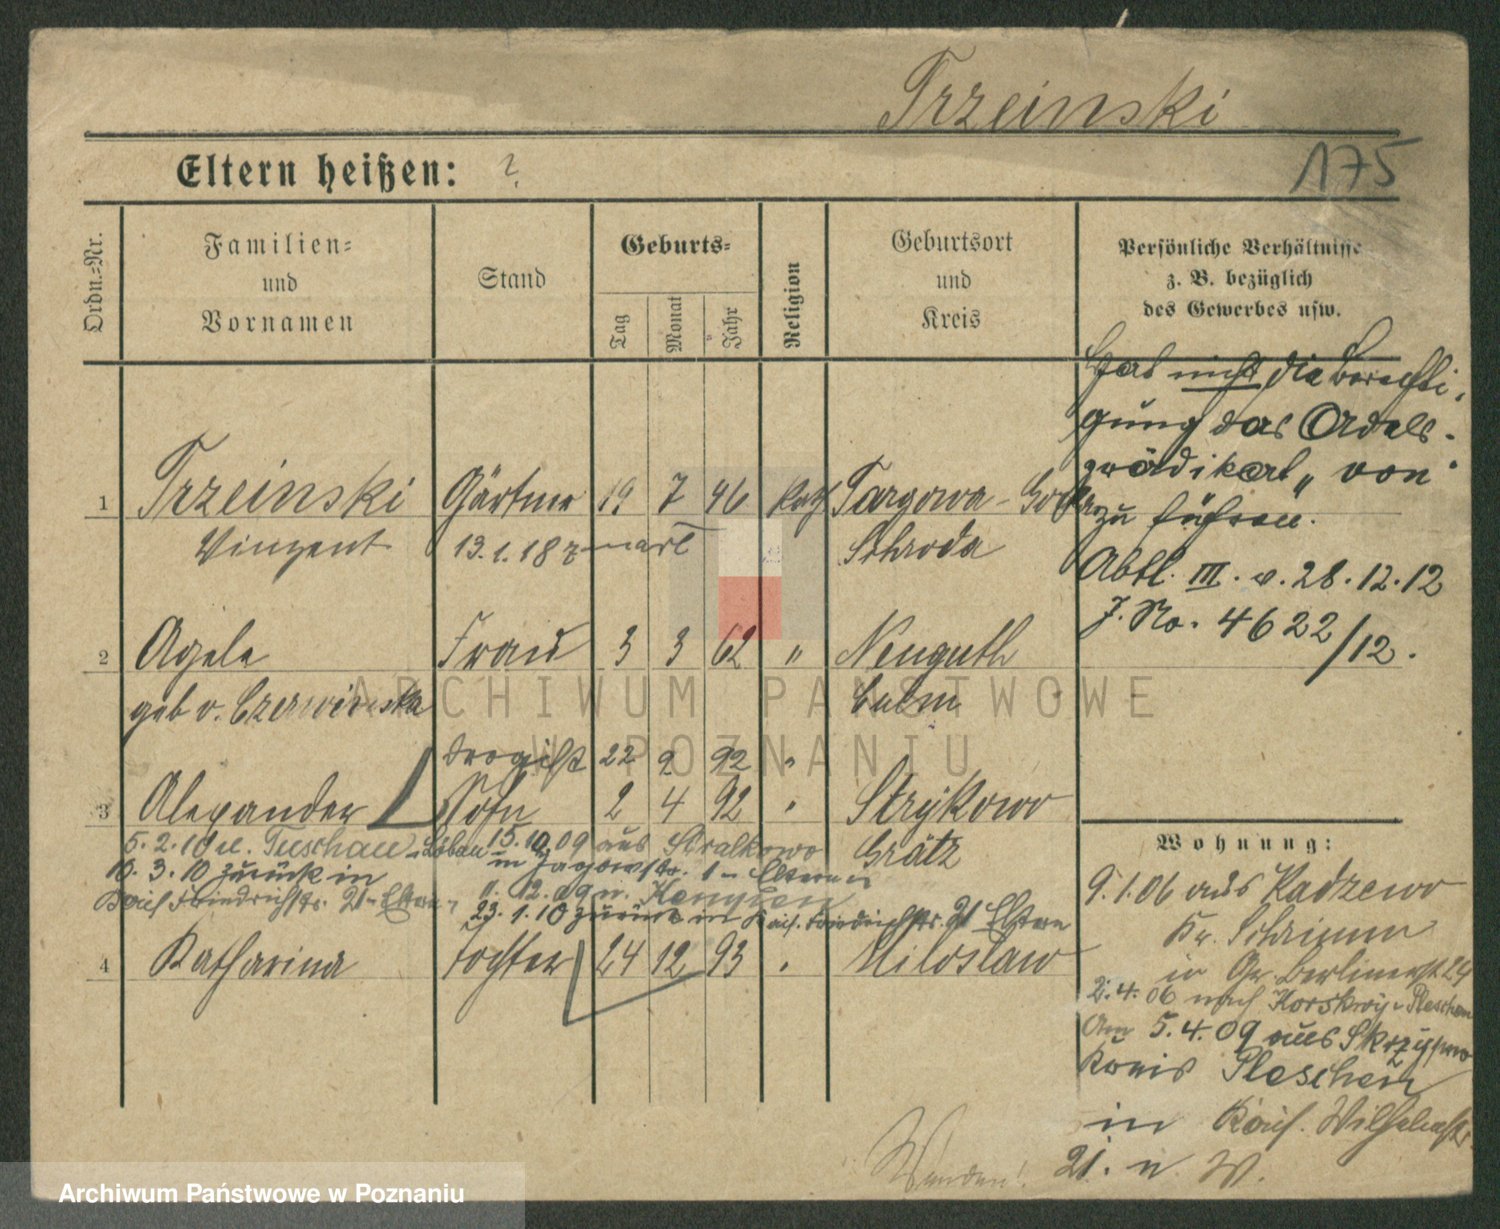 Trzeinski
175
Eltern heißen: ?
Ordn.=Nr.
Familien= und Vornamen
Stand
Geburts=
Tag
Monat
Jahr
Religion
Geburtsort und Kreis
Persönliche Verhältnisse
z. B. bezüglich
des Gewerbes usw.
Hat nicht die Berechti-
gung das Adels-
prädikat "von"
zu führen.
Abtl. III. v. 28.12.12
J. No. 4622/12.
1 Trzeinski Gärtner 19 7 46 kath Targowa-Gorka
Vinzent 13.1.187 Schroda
2 Agele Frau 3 3 62 " Neuguth
geb v. Czerwinska Culm
Drogist 22 2 92 "
3 Alexander Sohn 2 4 92 " Strykowo
Grätz
5.2.10 n. Tuschau-Löbau 15.10.09 aus Stralkowo
10.3.10 zurück in
in Eltern
Kais. Friedrichstr. 21 - Eltern
1.12.09 n.
23.1.10 zurück in Kais. Friedrichstr. 21 Eltern
4 Katharina Tochter 24 12 93 " Miloslaw
Wohnung:
9.1.06 aus Radzewo
Kr. Schrimm
in Gr. Berlinerst 24
2.4.06 nach Pleschen
Am 5.4.09 aus
Kreis Pleschen
in Kais. Wilhelmstr.
21. n W.
Wenden!
ARCHIWUM PAŃSTWOWE
W POZNANIU
Archiwum Państwowe w Poznaniu